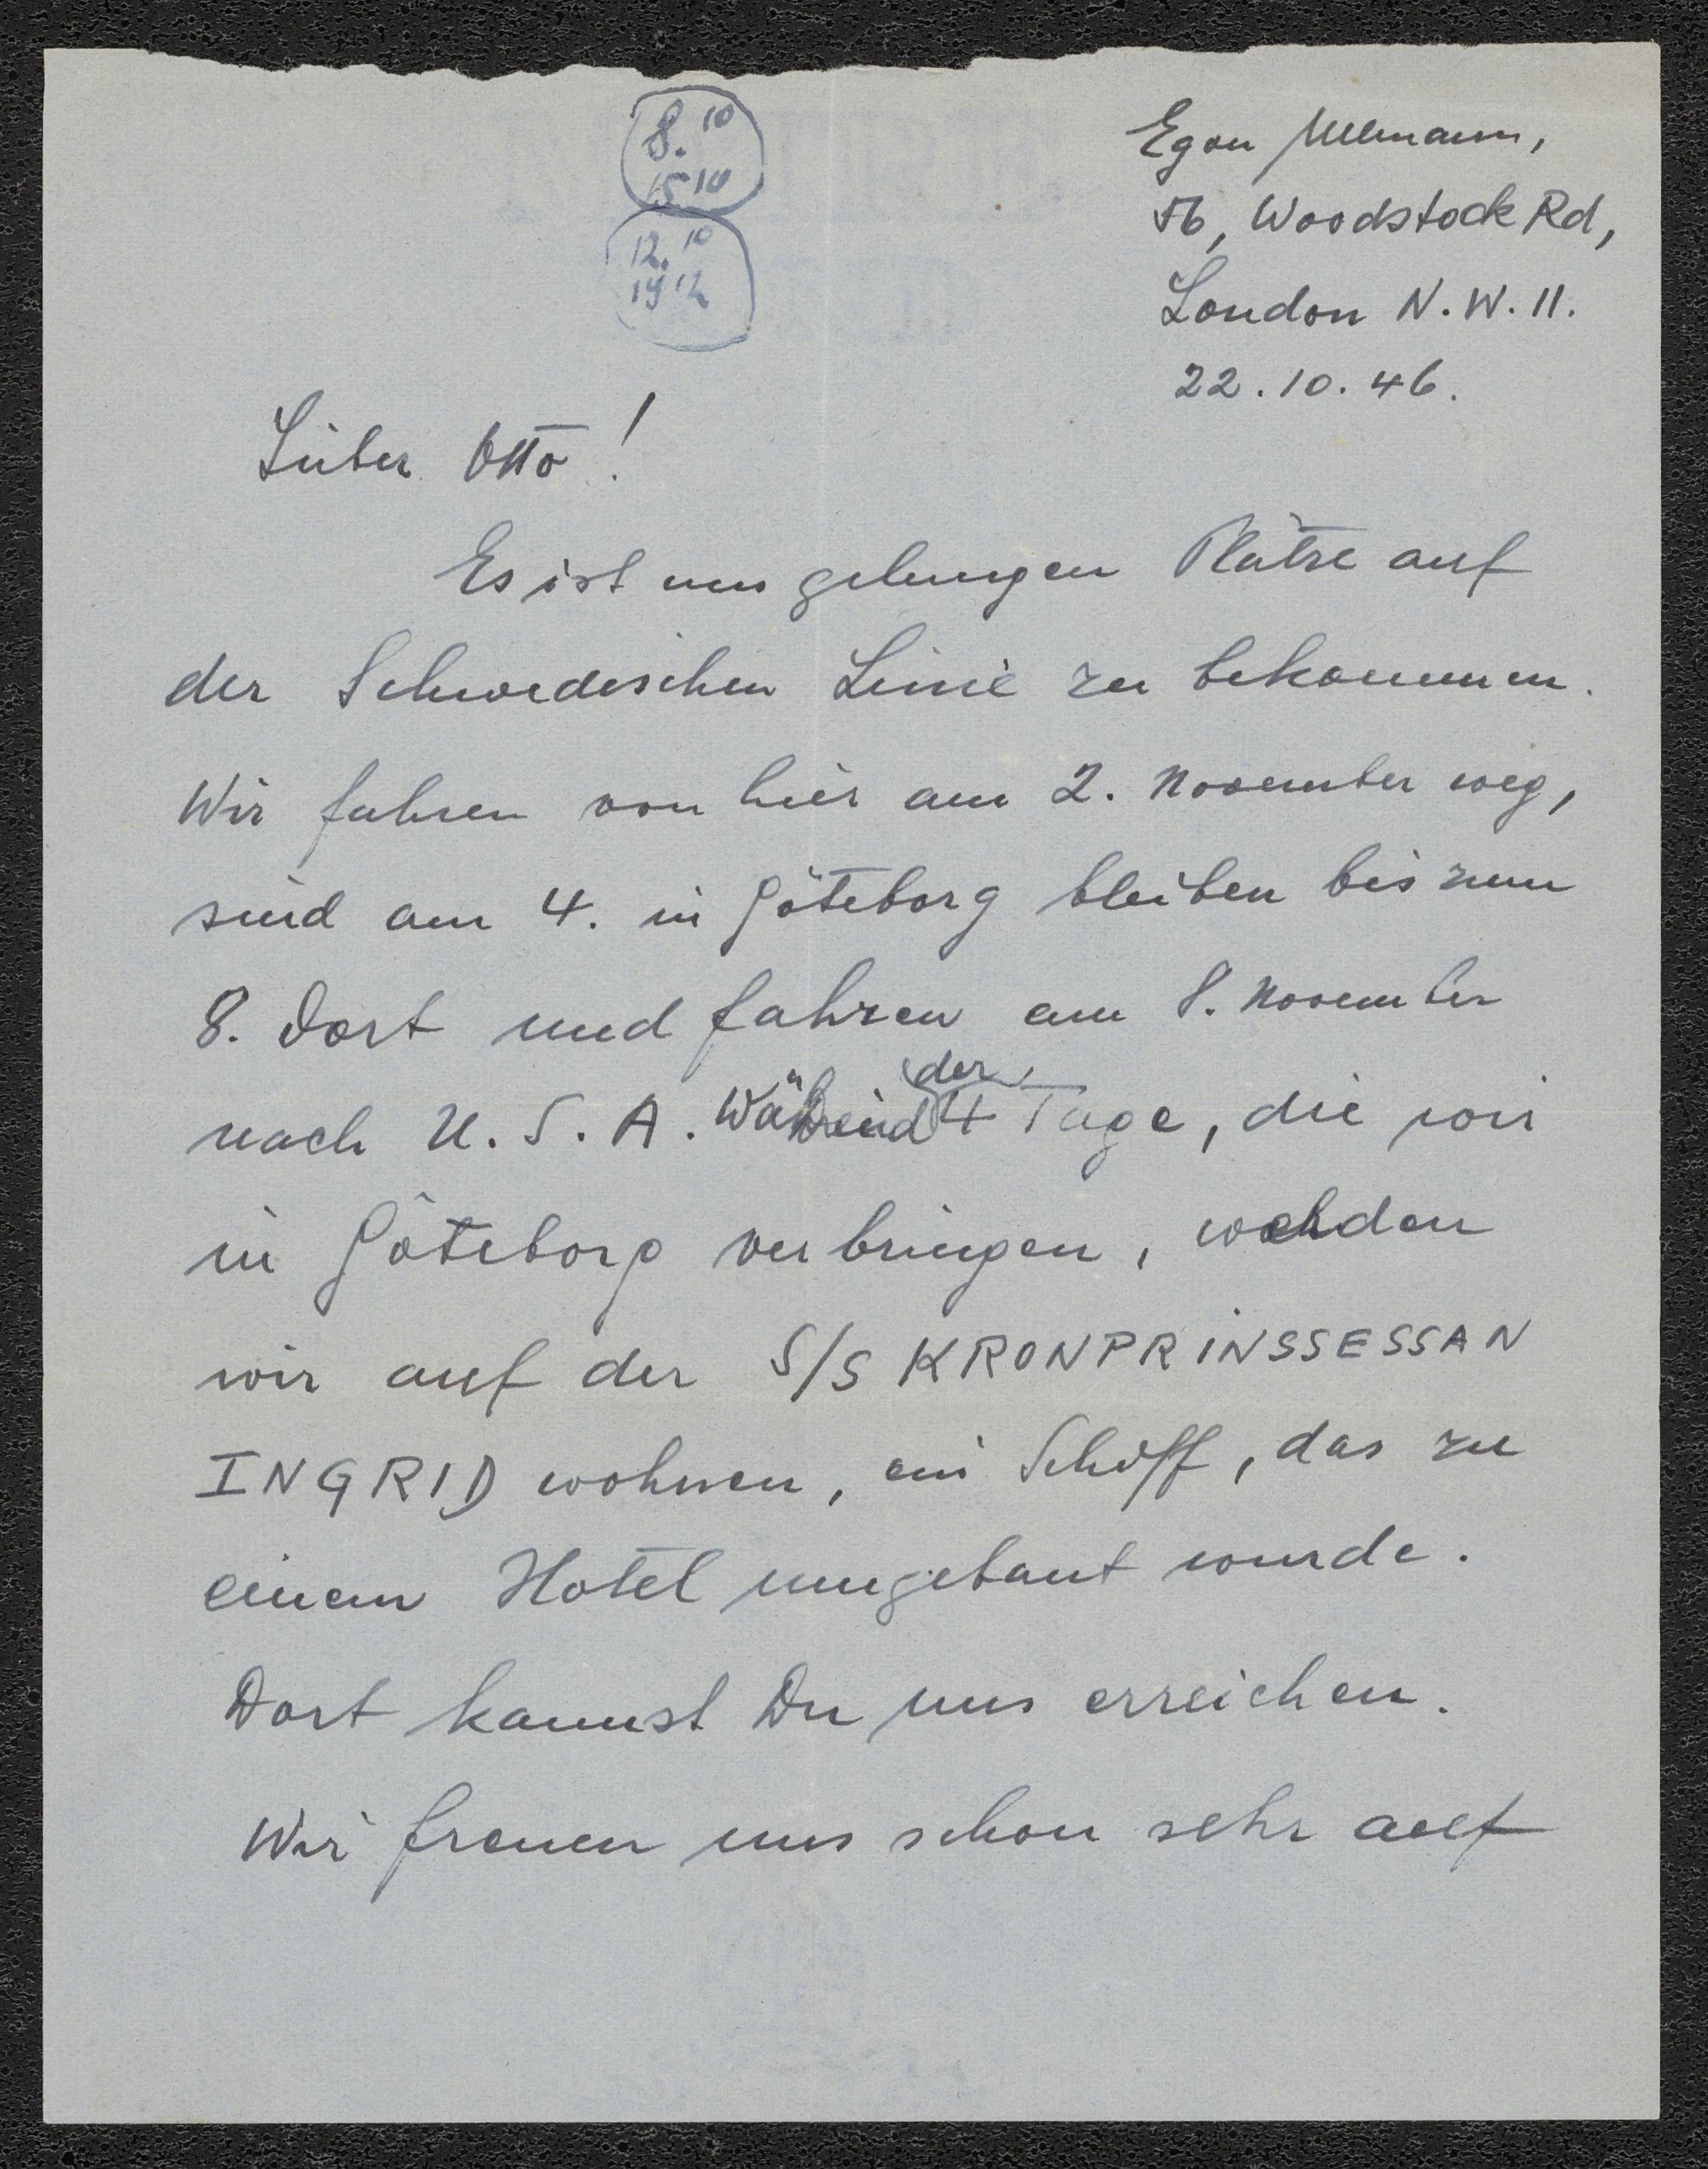 8.10
15 10
12.10
Egon Ullmann,
56, Woodstock Rd,
London N.W.11.
22.10.46.
Lieber Otto!
Es ist uns gelungen Plätze auf
der Schwedischen Linie zu bekommen.
Wir fahren von hier am 2. November weg,
sind am 4. in Göteborg bleiben bis zum
8. dort und fahren am 8. November
nach U.S.A. Während der 4 Tage, die wir
in Göteborg verbringen, werden
wir auf der S/S KRONPRINSSESSAN
INGRID wohnen, ein Schiff, das zu
einem Hotel umgebaut wurde.
Dort kannst Du uns erreichen.
Wir freuen uns schon sehr auf